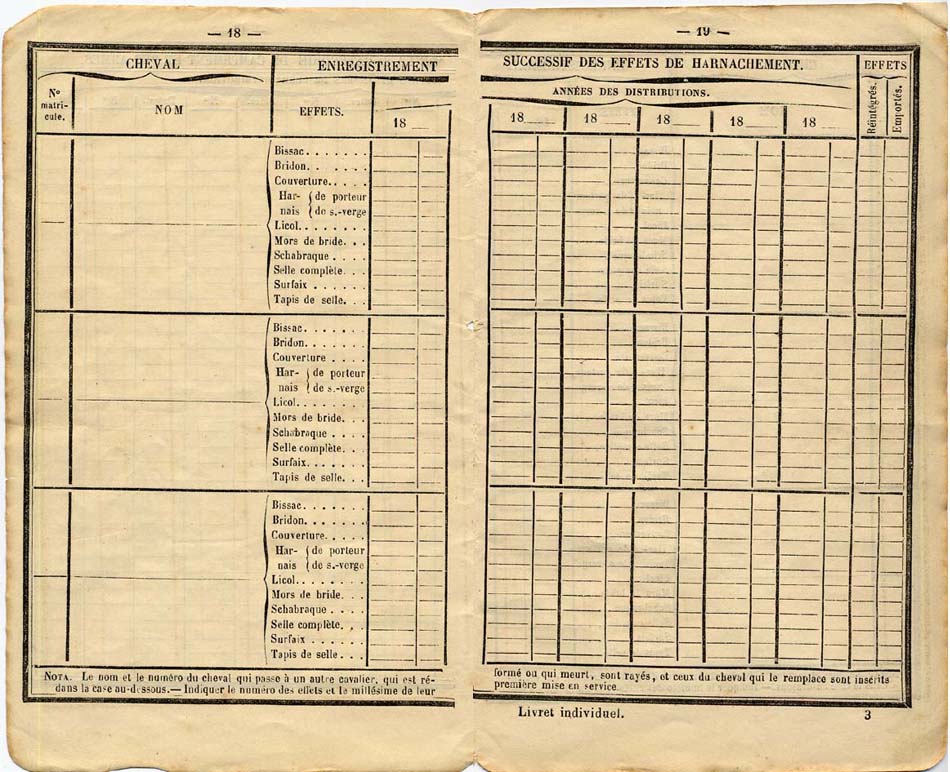 — 18 —
CHEVAL
ENREGISTREMENT
No
matri-
cule.
NOM
EFFETS.
18
Bissac . . . . . . .
Bridon. . . . . . . .
Couverture. . . . .
Har- { de porteur
nais { de s.-verge
Licol. . . . . . . .
Mors de bride. . .
Schabraque . . . .
Selle complète. . .
Surfaix . . . . . .
Tapis de selle. . .
Bissac. . . . . . .
Bridon. . . . . . .
Couverture . . . .
Har- { de porteur
nais { de s.-verge
Licol. . . . . . . .
Mors de bride. . .
Schabraque . . . .
Selle complète. . .
Surfaix. . . . . . .
Tapis de selle. . .
Bissac. . . . . . .
Bridon. . . . . . . .
Couverture. . . . .
Har- { de porteur
nais { de s.-verge
Licol. . . . . . . .
Mors de bride. . .
Schabraque . . . .
Selle complète. . .
Surfaix . . . . . .
Tapis de selle . . .
NOTA. Le nom et le numéro du cheval qui passe à un autre cavalier, qui est ré-
dans la case au-dessous. — Indiquer le numéro des effets et le millésime de leur
— 19 —
SUCCESSIF DES EFFETS DE HARNACHEMENT.
EFFETS
ANNÉES DES DISTRIBUTIONS.
Réintégrés.
Emportés.
18 18 18 18 18
formé ou qui meurt, sont rayés, et ceux du cheval qui le remplace sont inscrits
première mise en service
Livret individuel. 3